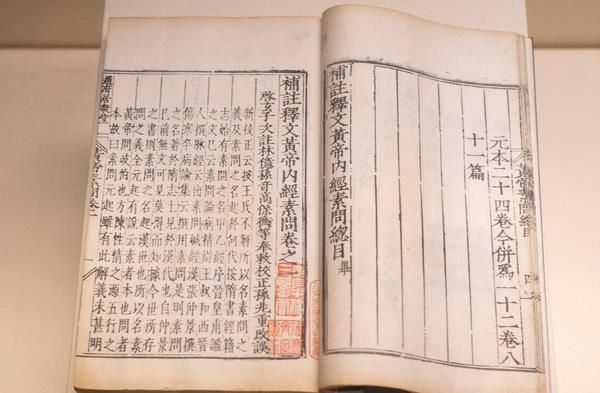 黃帝素問總目 四
元本二十四卷今併爲一十二卷八
十一篇
補註釋文黃帝內經素問總目 畢
補註釋文黃帝內經素問卷之一
啓玄子次註林億孫奇高保衡等奉敕校正孫兆重改誤
新校正云按王氏不解所以名素問之
義及素問之名起於何代按隋書經籍
志始有素問之名甲乙經序晉皇甫謐
之文已云素問論病精辨王叔和西晉
人撰脉經云出素問鍼經漢張仲景撰
傷寒卒病論集云撰用素問是則素問
之名著於隋志上見於漢代也自仲景
已前無文可見莫得而知據今世所存
之書則素問之名起漢世也所以名素
問之義全元起有說云素者本也問者
黃帝問岐伯也方陳性情之源五行之
本故曰素問元起雖有此解義未甚明
黃帝素問卷一